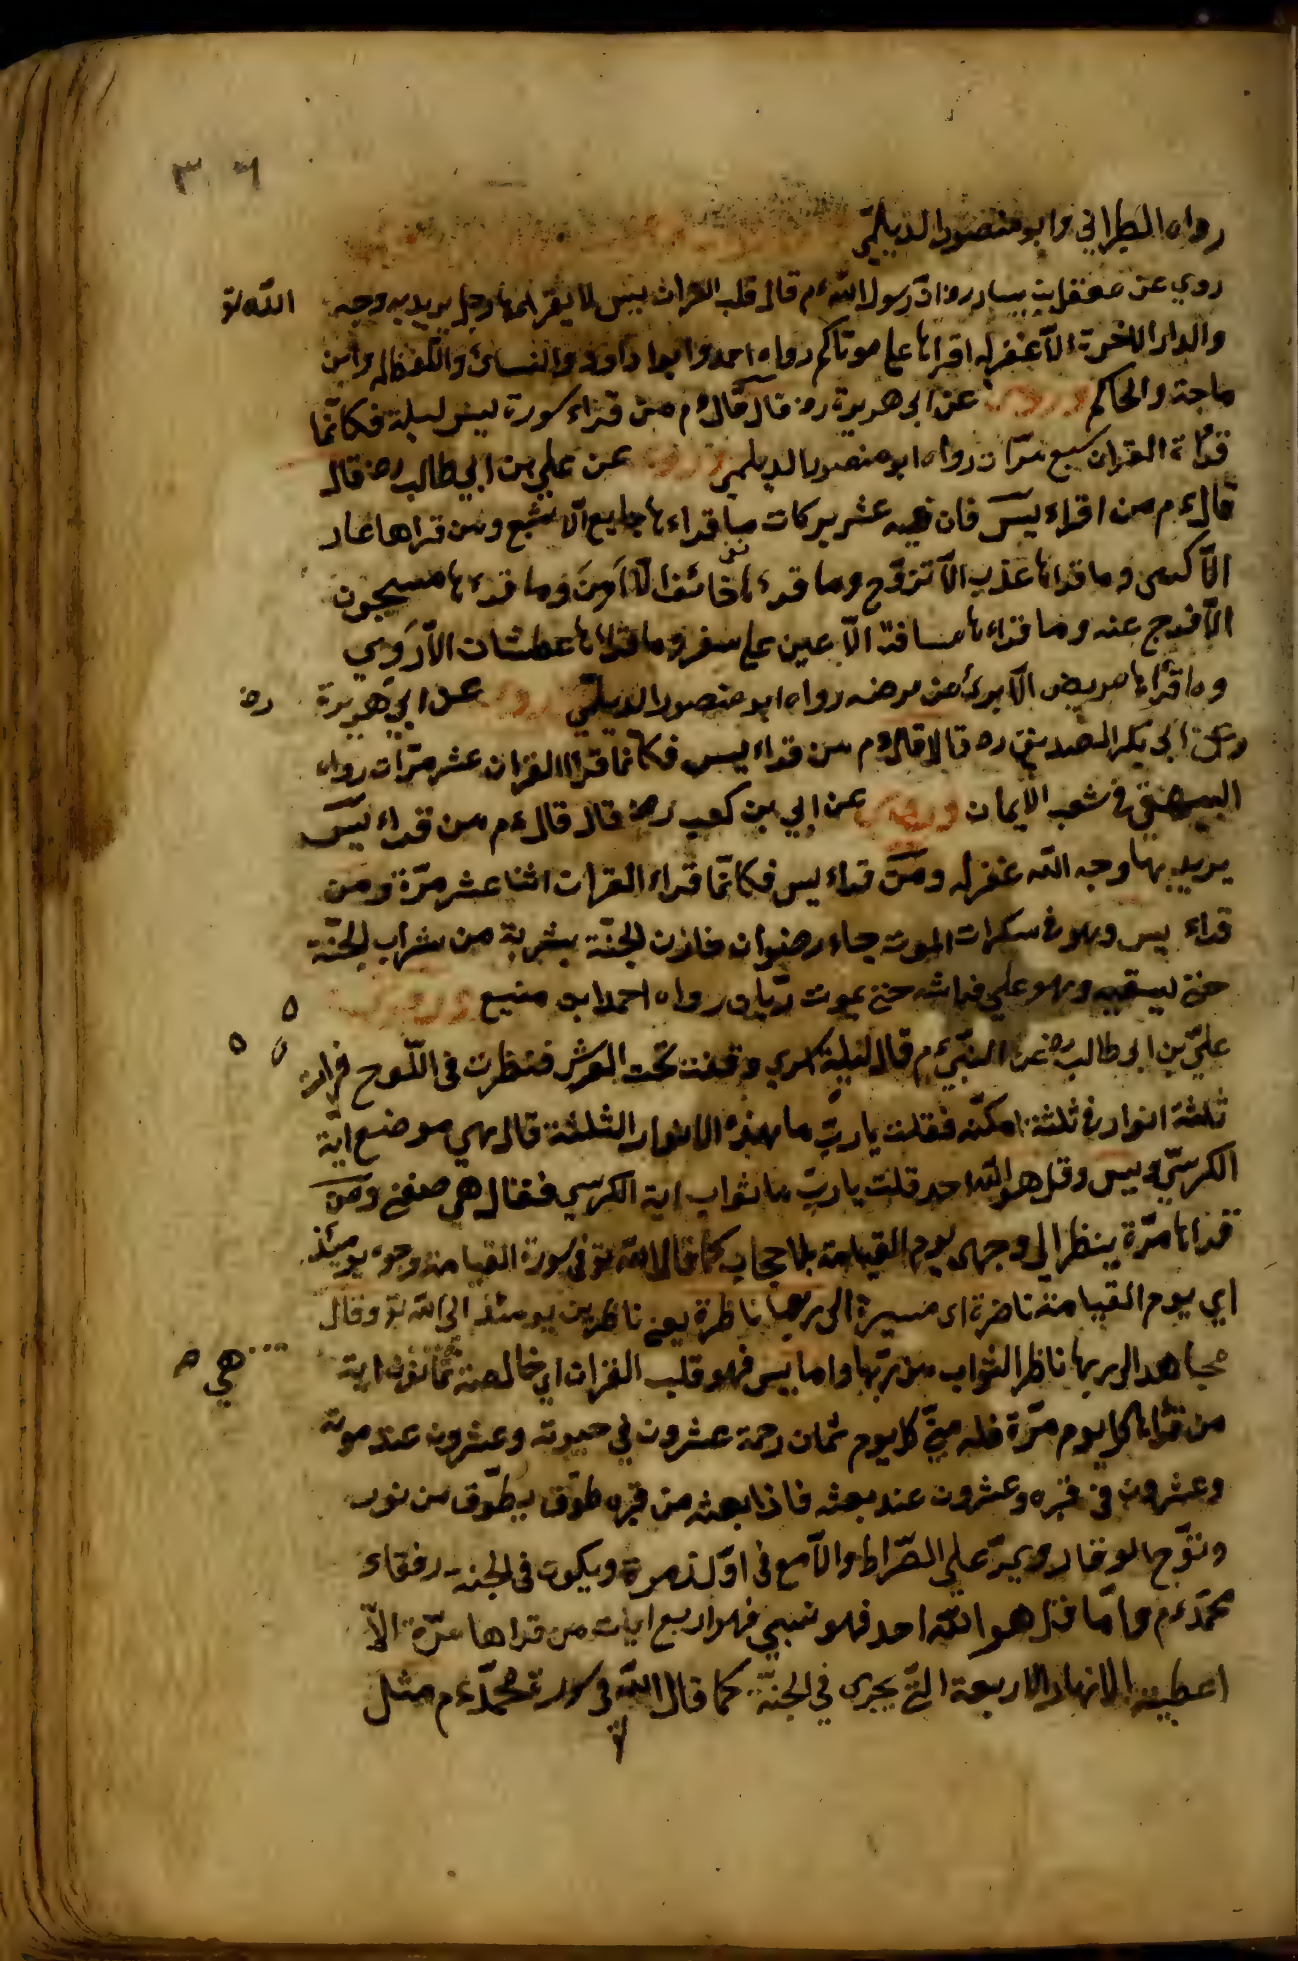 ٣٠٦
رواه الطبراني وابو منصور الديلمي
روي عن معقل بن يسار رض ان رسول الله ءم قال قلب القران يس لا يقراها رجل يريد به وجه الله تع
والدار الاخرة الا غفر له اقراها على موتاكم رواه احمد وابوا داود والنسائ وابن
ماجة والحاكم وروي عن ابى هريرة رض قال قال ءم من قراء سورة يس ليلة فكانما
قراة القران سبع مرات رواه ابو منصور الديلمي وروي عن علي بن ابي طالب رض قال
قال ءم من اقراء يس فان فيه عشر بركات ما قراء ها جايع الا شبع ومن قراها عار
الا كسى وما قراها عذب الا تزوج وما قرءها خائفا الا امن وما قرءها مسجون
الا فرج عنه وما قراءها مسافر الا عين على سفر وما قراها عطشان الا روي
وما قرأها مريض الا برئ من مرضه رواه ابو منصور الديلمي روي عن ابي هريرة رض
وعن ابى بكر الصديق رض قالا قال ءم من قراء يس فكانما قرا القران عشر مرات رواه
البيهقي في شعب الايمان وروي عن ابي بن كعب رض قال قال ءم من قراء يس
يريد بها وجه الله غفر له ومن قراء يس فكانما قراء القران اثنا عشر مرة ومن
قراء يس وهو في سكرات الموت جاء رضوان خازن الجنة بشربة من شراب الجنة
حتى يسقيه وهو علي فراشه حتى يموت ريان رواه احمد ابو منيع وروي عن
علي بن ابى طالب رض عن النبي ءم قال ليلة اسري وقفت تحت العرش فنظرت في اللوح فرايت
ثلثة انوار في ثلثة امكنه فقلت يا رب ما هذه الانوار الثلثة قال هي موضع اية
الكرسي ويس وقل هو الله احد قلت يا رب ما ثواب اية الكرسي فقال هي صفتي ومن
قراها مرة ينظر الى وجهى يوم القيامة بلا حجاب كما قال الله تع في سورة القيامة وجوه يومئذ
اي يوم القيامة ناضرة اى مسيرة الى ربها ناظرة يعني ناظرين يومئذ الى الله تع وقال
مجاهد الى ربها ناظر الثواب من ربها واما يس فهو قلب القران اي خالصه هي ثمانون اية
من قراها كل يوم مرة فله مني كل يوم ثمان رحمة عشرون في حيوته وعشرون عند موته
وعشرون في قبره وعشرون عند بعثه فاذا بعثه من قبره طوق بطوق من نور
وتوج الوقار ويمر على الصراط والامع في اول زمرة ويكون في الجنة رفقاء
محمد ءم واما قل هو الله احد فهو نسبي فهو اربع ايات من قراها مرة الا
اعطيته الانهار الاربعة التي يجرى في الجنة كما قال الله في سورة محمد ءم مثل